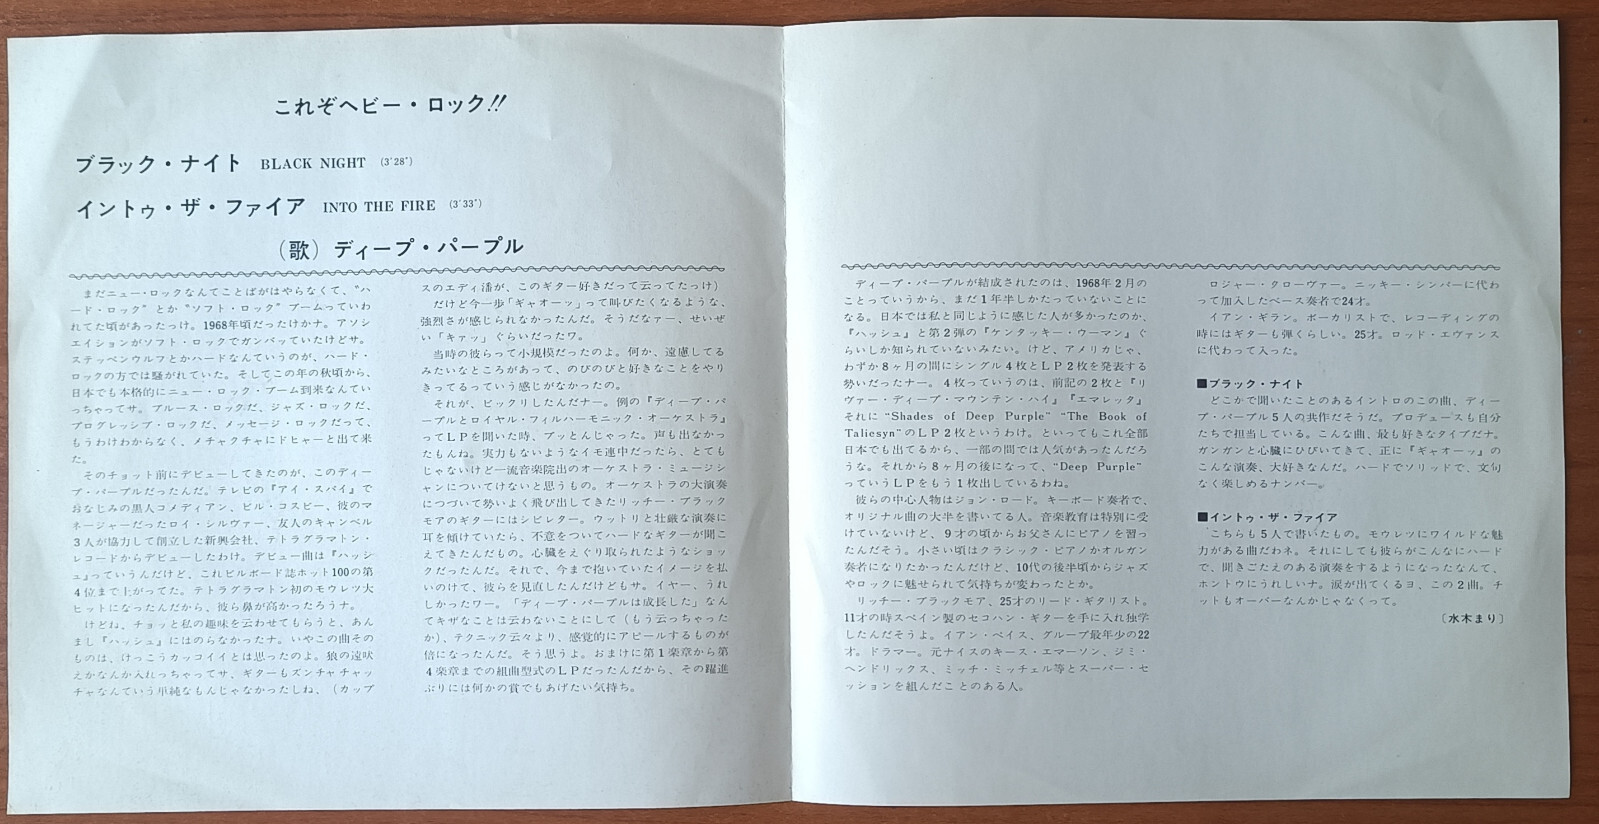 これぞヘビー・ロック!!
ブラック・ナイト BLACK NIGHT (3′28″)
イントゥ・ザ・ファイア INTO THE FIRE (3′33″)
(歌) ディープ・パープル
まだニュー・ロックなんてことばがはやらなくて、“ハ
ード・ロック” とか “ソフト・ロック” ブームっていわ
れてた頃があったっけ。1968年頃だったけかナ。アソシ
エイションがソフト・ロックでガンバッていたけどサ。
ステッペンウルフとかハードなんていうのが、ハード・
ロックの方では騒がれていた。そしてこの年の秋頃から、
日本でも本格的にニュー・ロック・ブーム到来なんてい
っちゃってサ。ブルース・ロックだ、ジャズ・ロックだ、
プログレッシブ・ロックだ、メッセージ・ロックだって、
もうわけわからなく、メチャクチャにドヒャーと出て来
た。
そのチョット前にデビューしてきたのが、このディー
プ・パープルだったんだ。テレビの『アイ・スパイ』で
おなじみの黒人コメディアン、ビル・コスビー、彼のマ
ネージャーだったロイ・シルヴァー、友人のキャンベル
3人が協力して創立した新興会社、テトラグラマトン・
レコードからデビューしたわけ。デビュー曲は『ハッシ
ュ』っていうんだけど、これビルボード誌ホット100の第
4位まで上がってた。テトラグラマトン初のモウレツ大
ヒットになったんだから、彼ら鼻が高かったろうナ。
けどね、チョッと私の趣味を云わせてもらうと、あん
まし『ハッシュ』にはのらなかったナ。いやこの曲その
ものは、けっこうカッコイイとは思ったのよ。狼の遠吠
えかなんか入れっちゃってサ、ギターもズンチャチャッ
チャなんていう単純なもんじゃなかったしね、(カップ
スのエディ潘が、このギター好きだって云ってたっけ)
だけど今一歩「ギャオーッ」って叫びたくなるような、
強烈さが感じられなかったんだ。そうだなァー、せいぜ
い「キァッ」ぐらいだったワ。
当時の彼らって小規模だったのよ。何か、遠慮してる
みたいなところがあって、のびのびと好きなことをやり
きってるっていう感じがなかったの。
それが、ビックリしたんだナー。例の『ディープ・パ
ープルとロイヤル・フィルハーモニック・オーケストラ』
ってLPを聞いた時、ブッとんじゃった。声も出なかっ
たもんね。実力もないようなイモ連中だったら、とても
じゃないけど一流音楽院出のオーケストラ・ミュージシ
ャンについてけないと思うもの。オーケストラの大演奏
につづいて勢いよく飛び出してきたリッチー・ブラック
モアのギターにはシビレター。ウットリと壮厳な演奏に
耳を傾けていたら、不意をついてハードなギターが聞こ
えてきたんだもの。心臓をえぐり取られたようなショッ
クだったんだ。それで、今まで抱いていたイメージを払
いのけて、彼らを見直したんだけどもサ。イヤー、うれ
しかったワー。「ディープ・パープルは成長した」なん
てキザなことは云わないことにして(もう云っちゃった
か)、テクニック云々より、感覚的にアピールするものが
倍になったんだ。そう思うよ。おまけに第1楽章から第
4楽章までの組曲型式のLPだったんだから、その躍進
ぶりには何かの賞でもあげたい気持ち。
ディープ・パープルが結成されたのは、1968年2月の
ことっていうから、まだ1年半しかたっていないことに
なる。日本では私と同じように感じた人が多かったのか、
『ハッシュ』と第2弾の『ケンタッキー・ウーマン』ぐ
らいしか知られていないみたい。けど、アメリカじゃ、
わずか8ヶ月の間にシングル4枚とLP2枚を発表する
勢いだったナー。4枚っていうのは、前記の2枚と『リ
ヴァー・ディープ・マウンテン・ハイ』『エマレッタ』
それに “Shades of Deep Purple” “The Book of
Taliesyn” のLP2枚というわけ。といってもこれ全部
日本でも出てるから、一部の間では人気があったんだろ
うな。それから8ヶ月の後になって、“Deep Purple”
っていうLPをもう1枚出しているわね。
彼らの中心人物はジョン・ロード。キーボード奏者で、
オリジナル曲の大半を書いてる人。音楽教育は特別に受
けていないけど、9才の頃からお父さんにピアノを習っ
たんだそう。小さい頃はクラシック・ピアノかオルガン
奏者になりたかったんだけど、10代の後半頃からジャズ
やロックに魅せられて気持ちが変わったとか。
リッチー・ブラックモア、25才のリード・ギタリスト。
11才の時スペイン製のセコハン・ギターを手に入れ独学
したんだそうよ。イアン・ペイス、グループ最年少の22
才。ドラマー。元ナイスのキース・エマーソン、ジミ・
ヘンドリックス、ミッチ・ミッチェル等とスーパー・セ
ッションを組んだことのある人。
ロジャー・クローヴァー。ニッキー・シンパーに代わ
って加入したベース奏者で24才。
イアン・ギラン。ボーカリストで、レコーディングの
時にはギターも弾くらしい。25才。ロッド・エヴァンス
に代わって入った。
■ブラック・ナイト
どこかで聞いたことのあるイントロのこの曲、ディー
プ・パープル5人の共作だそうだ。プロデュースも自分
たちで担当している。こんな曲、最も好きなタイプだナ。
ガンガンと心臓にひびいてきて、正に『ギャオーッ』の
こんな演奏、大好きなんだ。ハードでソリッドで、文句
なく楽しめるナンバー。
■イントゥ・ザ・ファイア
こちらも5人で書いたもの。モウレツにワイルドな魅
力がある曲だわネ。それにしても彼らがこんなにハード
で、聞きごたえのある演奏をするようになったなんて、
ホントウにうれしいナ。涙が出てくるヨ、この2曲。チ
ットもオーバーなんかじゃなくって。
〔水木まり〕